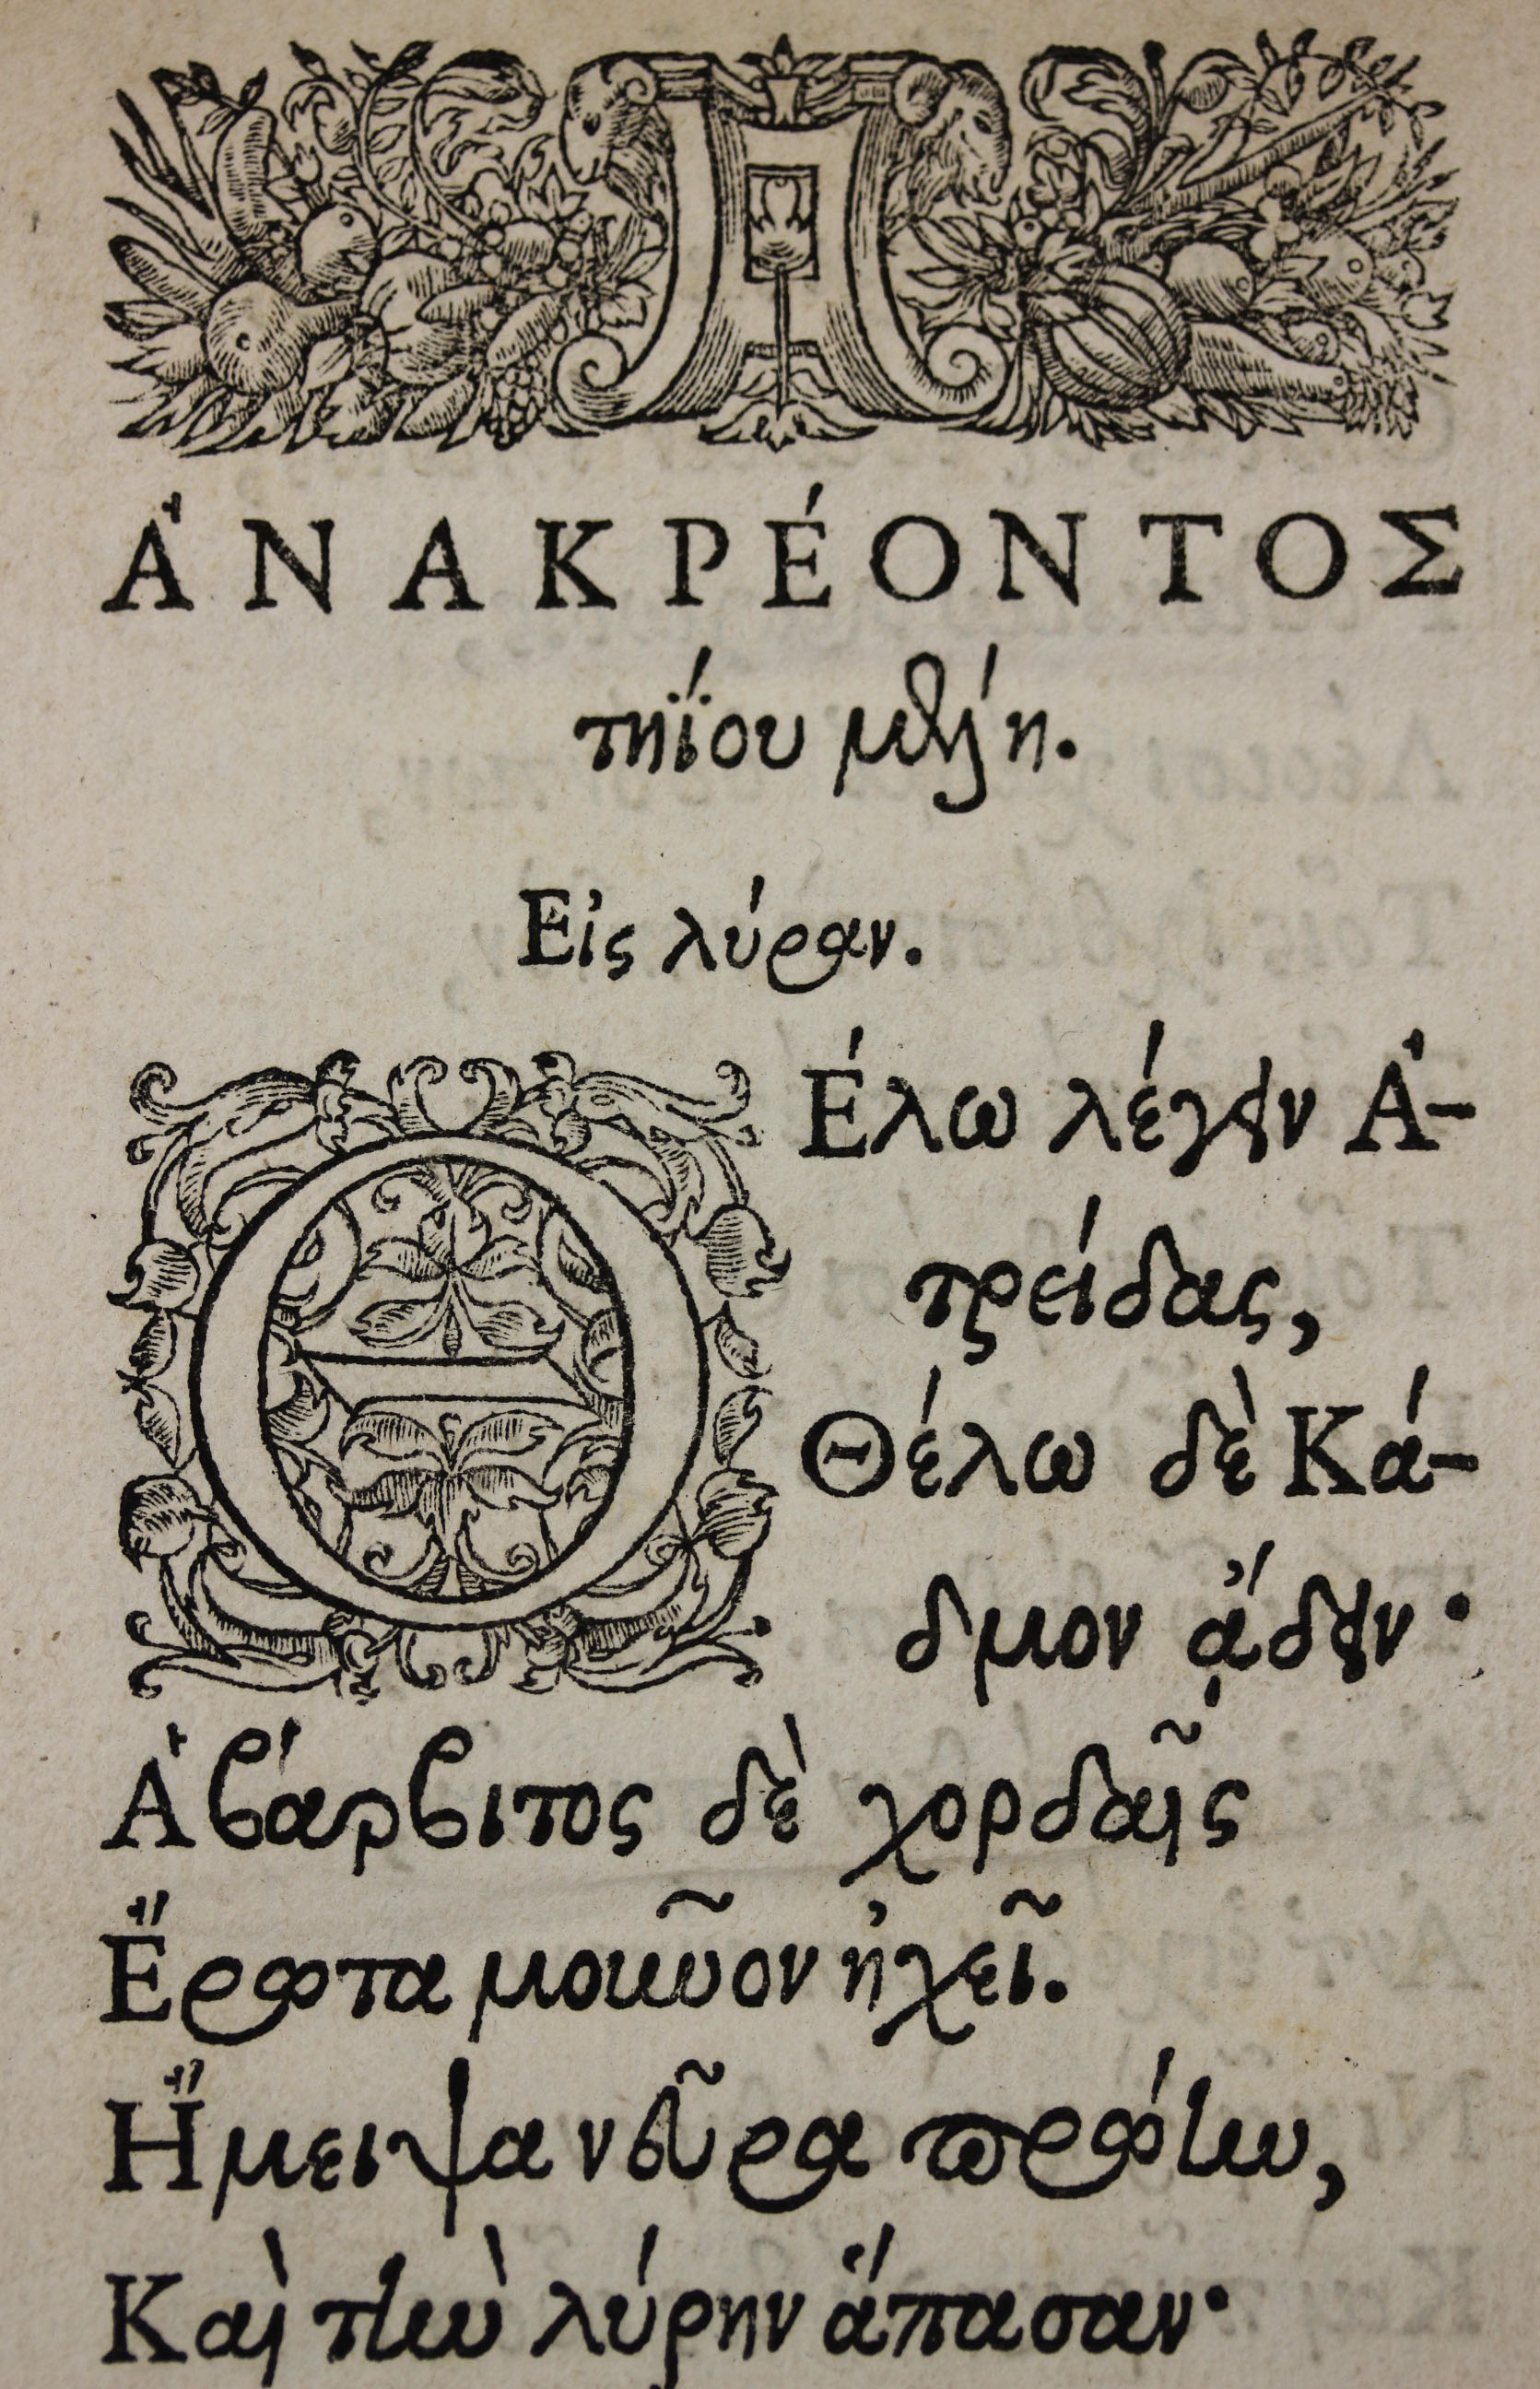 ἈΝΑΚΡΈΟΝΤΟΣ
τηΐου μέλη.
Εἰς λύραν.
ΘΈλω λέγειν Ἀ-
τρείδας,
Θέλω δὲ Κά-
δμον ᾄδειν·
Ἁ βάρβιτος δὲ χορδαῖς
Ἔρωτα μοῦνον ἠχεῖ.
Ἤμειψα νεῦρα πρώην,
Καὶ τὴν λύρην ἅπασαν·